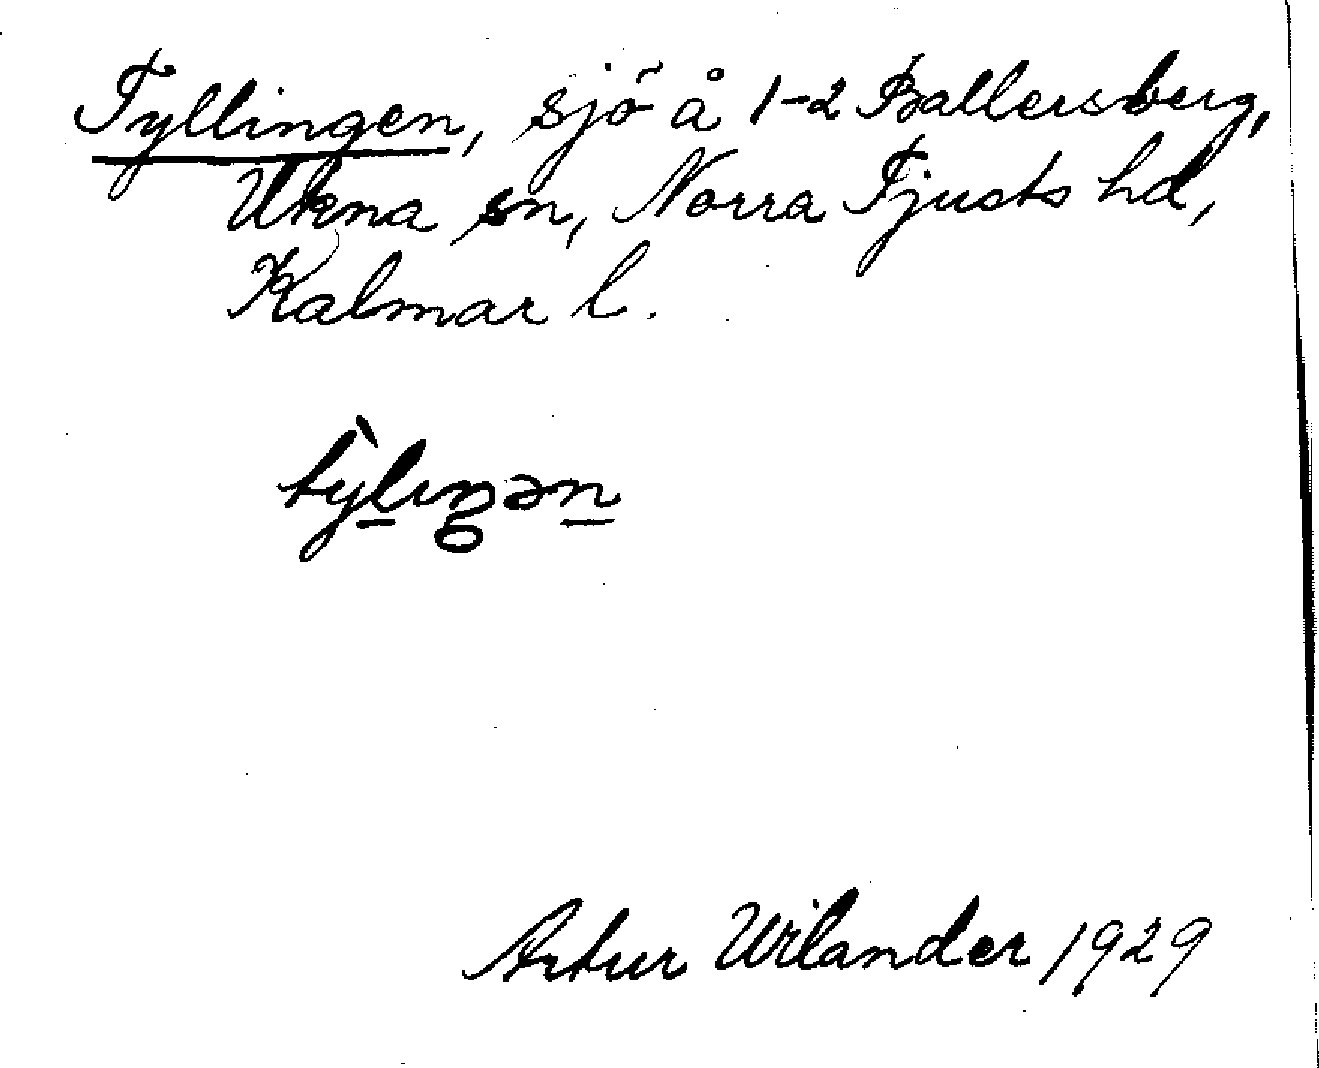 Tyllingen, sjö å 1-2 Ballersberg,
Ukna sn, Norra Tjusts hd,
Kalmar l.
tỳlıŋən
Artur Wilander 1929